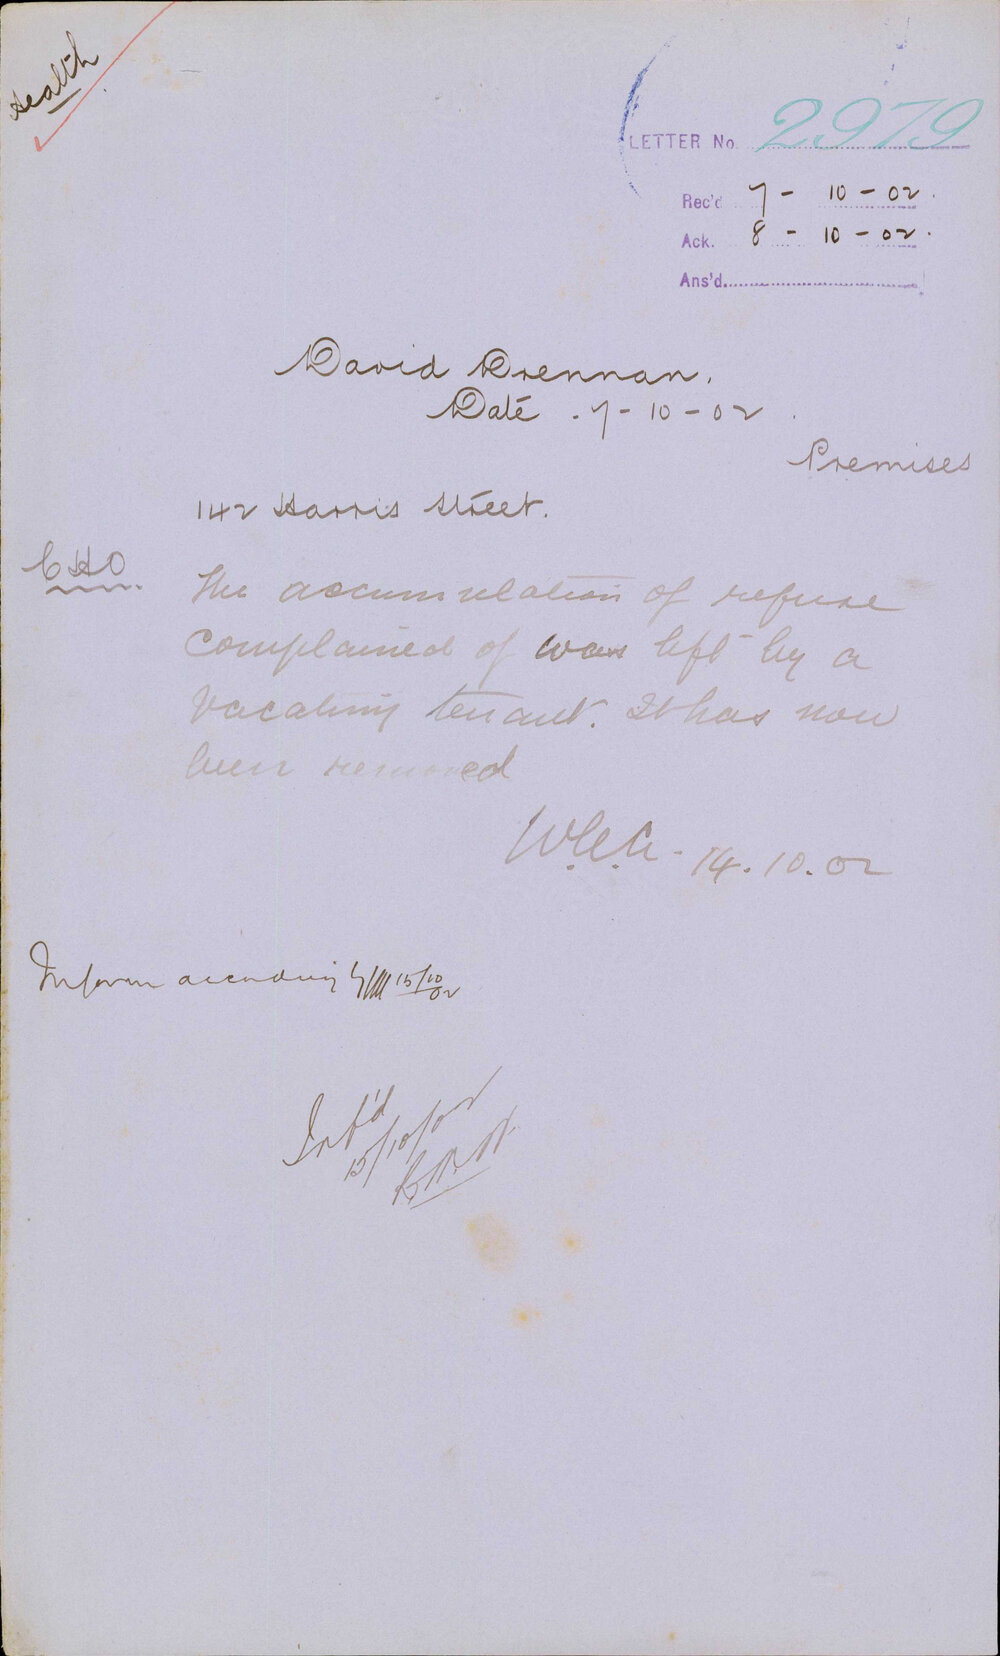 Health
LETTER No. 2979
Rec'd 7 - 10 - 02.
Ack. 8 - 10 - 02.
Ans'd.
David Drennan.
Date . 7 - 10 - 02 .
Premises
142 Harris Street.
CHO
The accumulation of refuse
complained of was left by a
vacating tenant. It has now
been removed
14.10.02
Inform accordingly 15/10/02
Inf'd
15/10/02